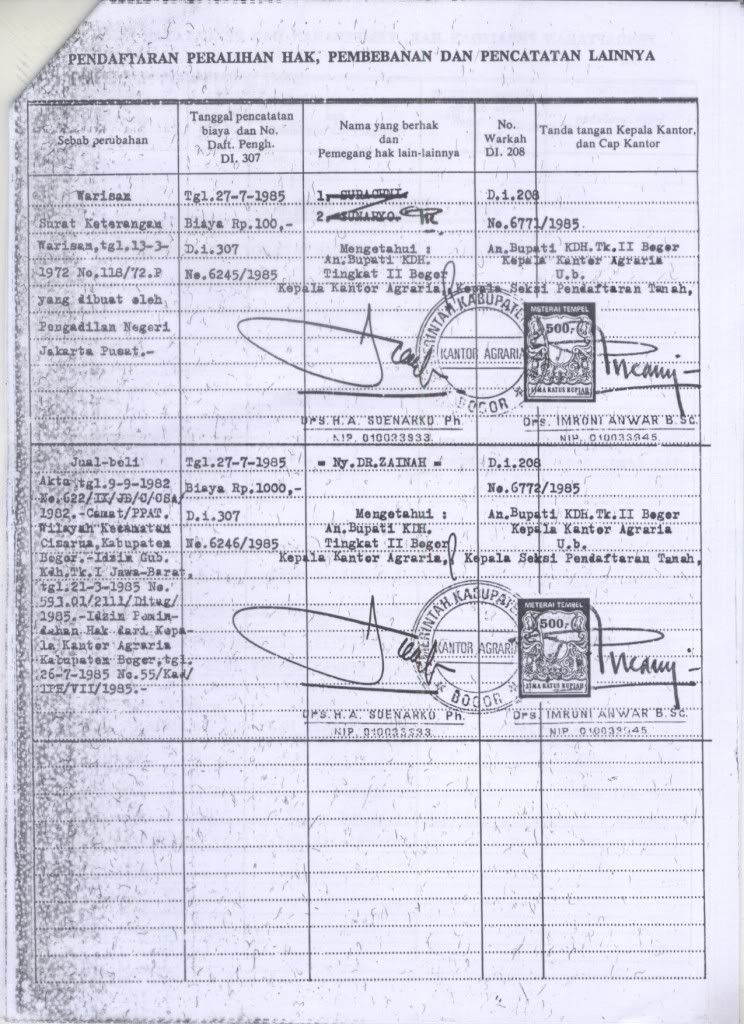 PENDAFTARAN PERALIHAN HAK, PEMBEBANAN DAN PENCATATAN LAINNYA
Sebab perubahan
Tanggal pencatatan
biaya dan No.
Daft. Pengh.
DI. 307
Nama yang berhak
dan
Pemegang hak lain-lainnya
No.
Warkah
DI. 208
Tanda tangan Kepala Kantor,
dan Cap Kantor
Warisan
Surat Keterangan
Warisan,tgl.13-3-
1972 No.118/72.P
yang dibuat oleh
Pengadilan Negeri
Jakarta Pusat.-
Tgl.27-7-1985
Biaya Rp.100,-
D.i.307
No.6245/1985
1.
2. SUNARYO.
Mengetahui :
An.Bupati KDH.
Tingkat II Bogor
Kepala Kantor Agraria,
D.i.208
No.6771/1985
An.Bupati KDH.Tk.II Bogor
Kepala Kantor Agraria
U.b.
Kepala Seksi Pendaftaran Tanah,
KANTOR AGRARIA
BOGOR
METERAI TEMPEL
500,-
LIMA RATUS RUPIAH
Drs.H.A. SOENARKO Ph.
NIP. 010033933.
Drs. IMRONI ANWAR B.Sc.
NIP. 010033945.
Jual-beli
Akta,tgl.9-9-1982
1982.-Camat/PPAT.
Wilayah Kecamatan
Cisarua,Kabupaten
Bogor.-Idzin Gub.
Kdh.Tk.I Jawa-Barat,
tgl.21-3-1985 No.
593.01/2111/Ditag/
1985.-Idzin Pemin-
dahan Hak dari Kepa-
la Kantor Agraria
Kabupaten Bogor,tgl.
26-7-1985 No.55/Kad/
IPH/VII/1985.-
Tgl.27-7-1985
Biaya Rp.1000,-
D.i.307
No.6246/1985
= Ny.DR.ZAINAH =
Mengetahui :
An.Bupati KDH.
Tingkat II Bogor
Kepala Kantor Agraria,
D.i.208
No.6772/1985
An.Bupati KDH.Tk.II Bogor
Kepala Kantor Agraria
U.b.
Kepala Seksi Pendaftaran Tanah,
KANTOR AGRARIA
BOGOR
METERAI TEMPEL
500,-
LIMA RATUS RUPIAH
Drs.H.A. SOENARKO Ph.
NIP. 010033933.
Drs. IMRONI ANWAR B.Sc.
NIP. 010033945.